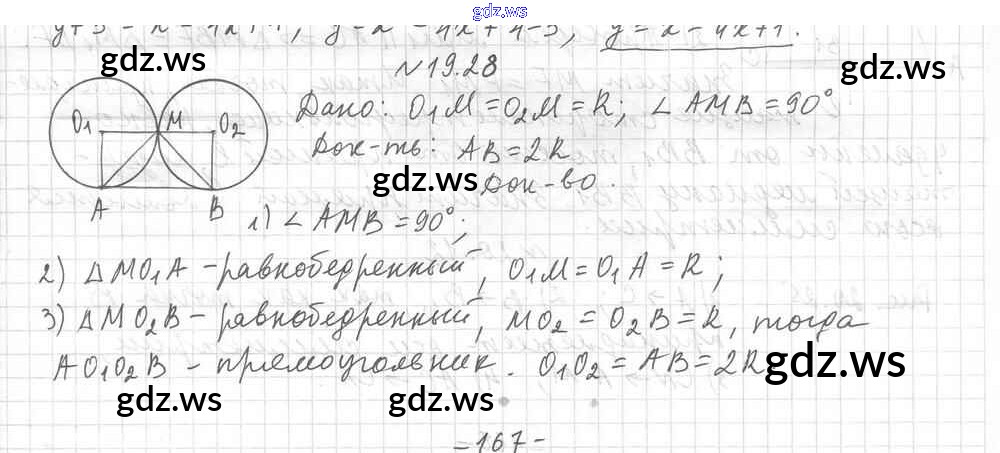 gdz.ws
y = x² - 4x + 1.
№ 19.28
gdz.ws
O₁ M O₂
Дано: O₁M = O₂M = R; ∠ AMB = 90°
Док-ть: AB = 2R
gdz.ws Док-во.
A B
1) ∠ AMB = 90°;
2) △ MO₁A - равнобедренный, O₁M = O₁A = R;
3) △ MO₂B - равнобедренный, MO₂ = O₂B = R, тогда
AO₁O₂B - прямоугольник. O₁O₂ = AB = 2R
gdz.ws
gdz.ws gdz.ws
- 167 -